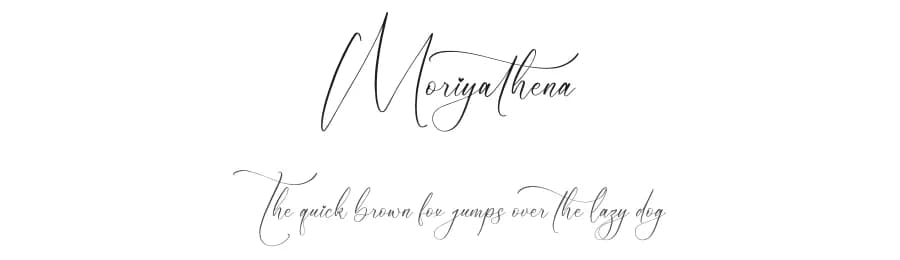 Moriyathena
The quick brown fox jumps over the lazy dog